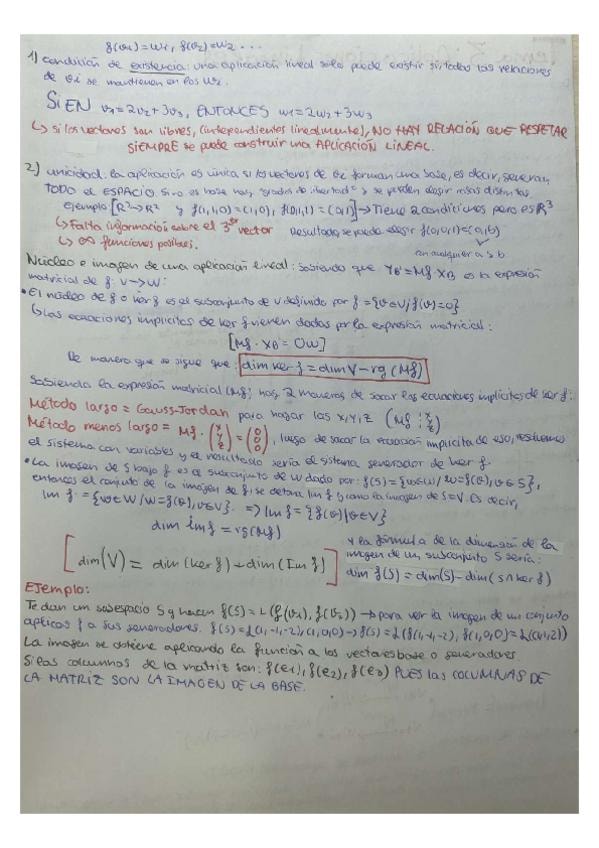 f(v1)=w1, f(v2)=w2 ...
1) condición de existencia: una aplicación lineal solo puede existir si todas las relaciones
de vi se mantienen en los wi.
Si EN v1=2v2+3v3, ENTONCES w1=2w2+3w3
↳ si los vectores son libres, (independientes linealmente), NO HAY RELACIÓN QUE RESPETAR
SIEMPRE se puede construir una APLICACIÓN LINEAL.
2) unicidad: la aplicación es única si los vectores de forman una base, es decir, generan
TODO el ESPACIO. Si no es base hay "grados de libertad" y se pueden elegir cosas distintas
ejemplo: [R³→R² y f(1,1,0)=(1,0), f(0,1,1)=(0,1)] → Tiene 2 condiciones pero es R³
↳ Falta información sobre el 3er vector Resultado, se puede elegir f(0,0,1)=(a,b)
↳ ∞ funciones posibles. con cualquier a y b
Núcleo e imagen de una aplicación lineal: sabiendo que YB'=Mf·XB es la expresión
matricial de f: V→W:
• El núcleo de f o ker f es el subconjunto de V definido por f={v∈V/f(v)=0}
↳ Las ecuaciones implícitas de ker f vienen dadas por la expresión matricial:
[Mf · XB = 0W]
De manera que se sigue que: dim ker f = dim V - rg(Mf)
Sabiendo la expresión matricial (Mf) hay 2 maneras de sacar las ecuaciones implícitas de ker f:
Método largo = Gauss-Jordan para hallar las x,y,z (Mf | x y z)
Método menos largo = Mf·(x y z) = (0 0 0), luego de sacar la ecuación implícita de eso, resolvemos
el sistema con variables y el resultado sería el sistema generador de ker f.
• La imagen de S bajo f es el subconjunto de W dado por: f(S)={w∈W/w=f(v), v∈S},
entonces el conjunto de la imagen de f, se denota Im f y como la imagen de S=V. Es decir,
Im f = {w∈W/w=f(v), v∈V}. => Im f = {f(v)|v∈V}
dim Im f = rg(Mf)
[dim(V) = dim(ker f) + dim(Im f)]
y la fórmula de la dimensión de la
imagen de un subconjunto S sería:
dim f(S) = dim(S) - dim(S∩ker f)
Ejemplo:
Te dan un subespacio S y hacen f(S)=L(f(v1), f(v2)) → para ver la imagen de un conjunto
aplicas f a sus generadores. f(S)=L(1,-1,-2),(1,0,0)→f(S)=L(f(1,-1,-2), f(1,0,0)=L(
La imagen se obtiene aplicando la función a los vectores base o generadores
Si las columnas de la matriz son: f(e1), f(e2), f(e3) PUES las COLUMNAS DE
LA MATRIZ SON LA IMAGEN DE LA BASE.